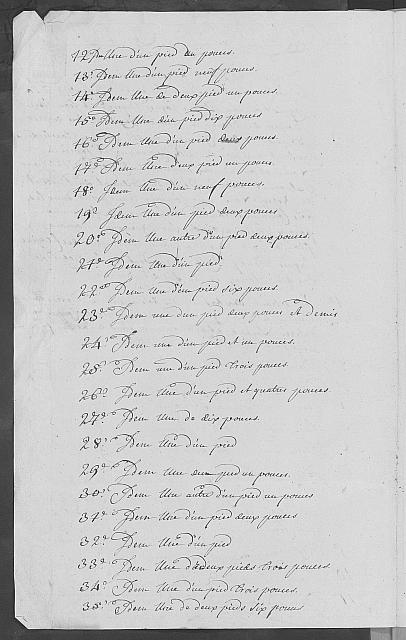 12º Idem Une d'un pied un pouces.
13º Idem Une d'un pied neuf pouces.
14º Idem Une de deux pied un pouces.
15º Idem Une d'un pied dix pouces
16º Idem Une d'un pied pouces.
17º Idem Une deux pied un pouces
18º Idem Une d'un neuf pouces.
19º Idem Une d'un pied deux pouces
20º Idem Une autre d'un pied deux pouces.
21º Idem Une d'un pied
22º Idem Une d'un pied six pouces.
23º Idem une d'un pied deux pouces et demis
24º Idem une d'un pied et un pouces.
25º Idem une d'un pied trois pouces.
26º Idem Une d'un pied et quatres pouces.
27º Idem Une de dix pouces.
28º Idem Une d'un pied
29º Idem Une d'un pied un pouces.
30º Idem Une autre d'un pied un pouces
31º Idem Une d'un pied deux pouces
32º Idem Une d'un pied
33º Idem Une de deux pieds trois pouces.
34º Idem Une d'un pied trois pouces.
35º Idem Une de deux pieds six pouces